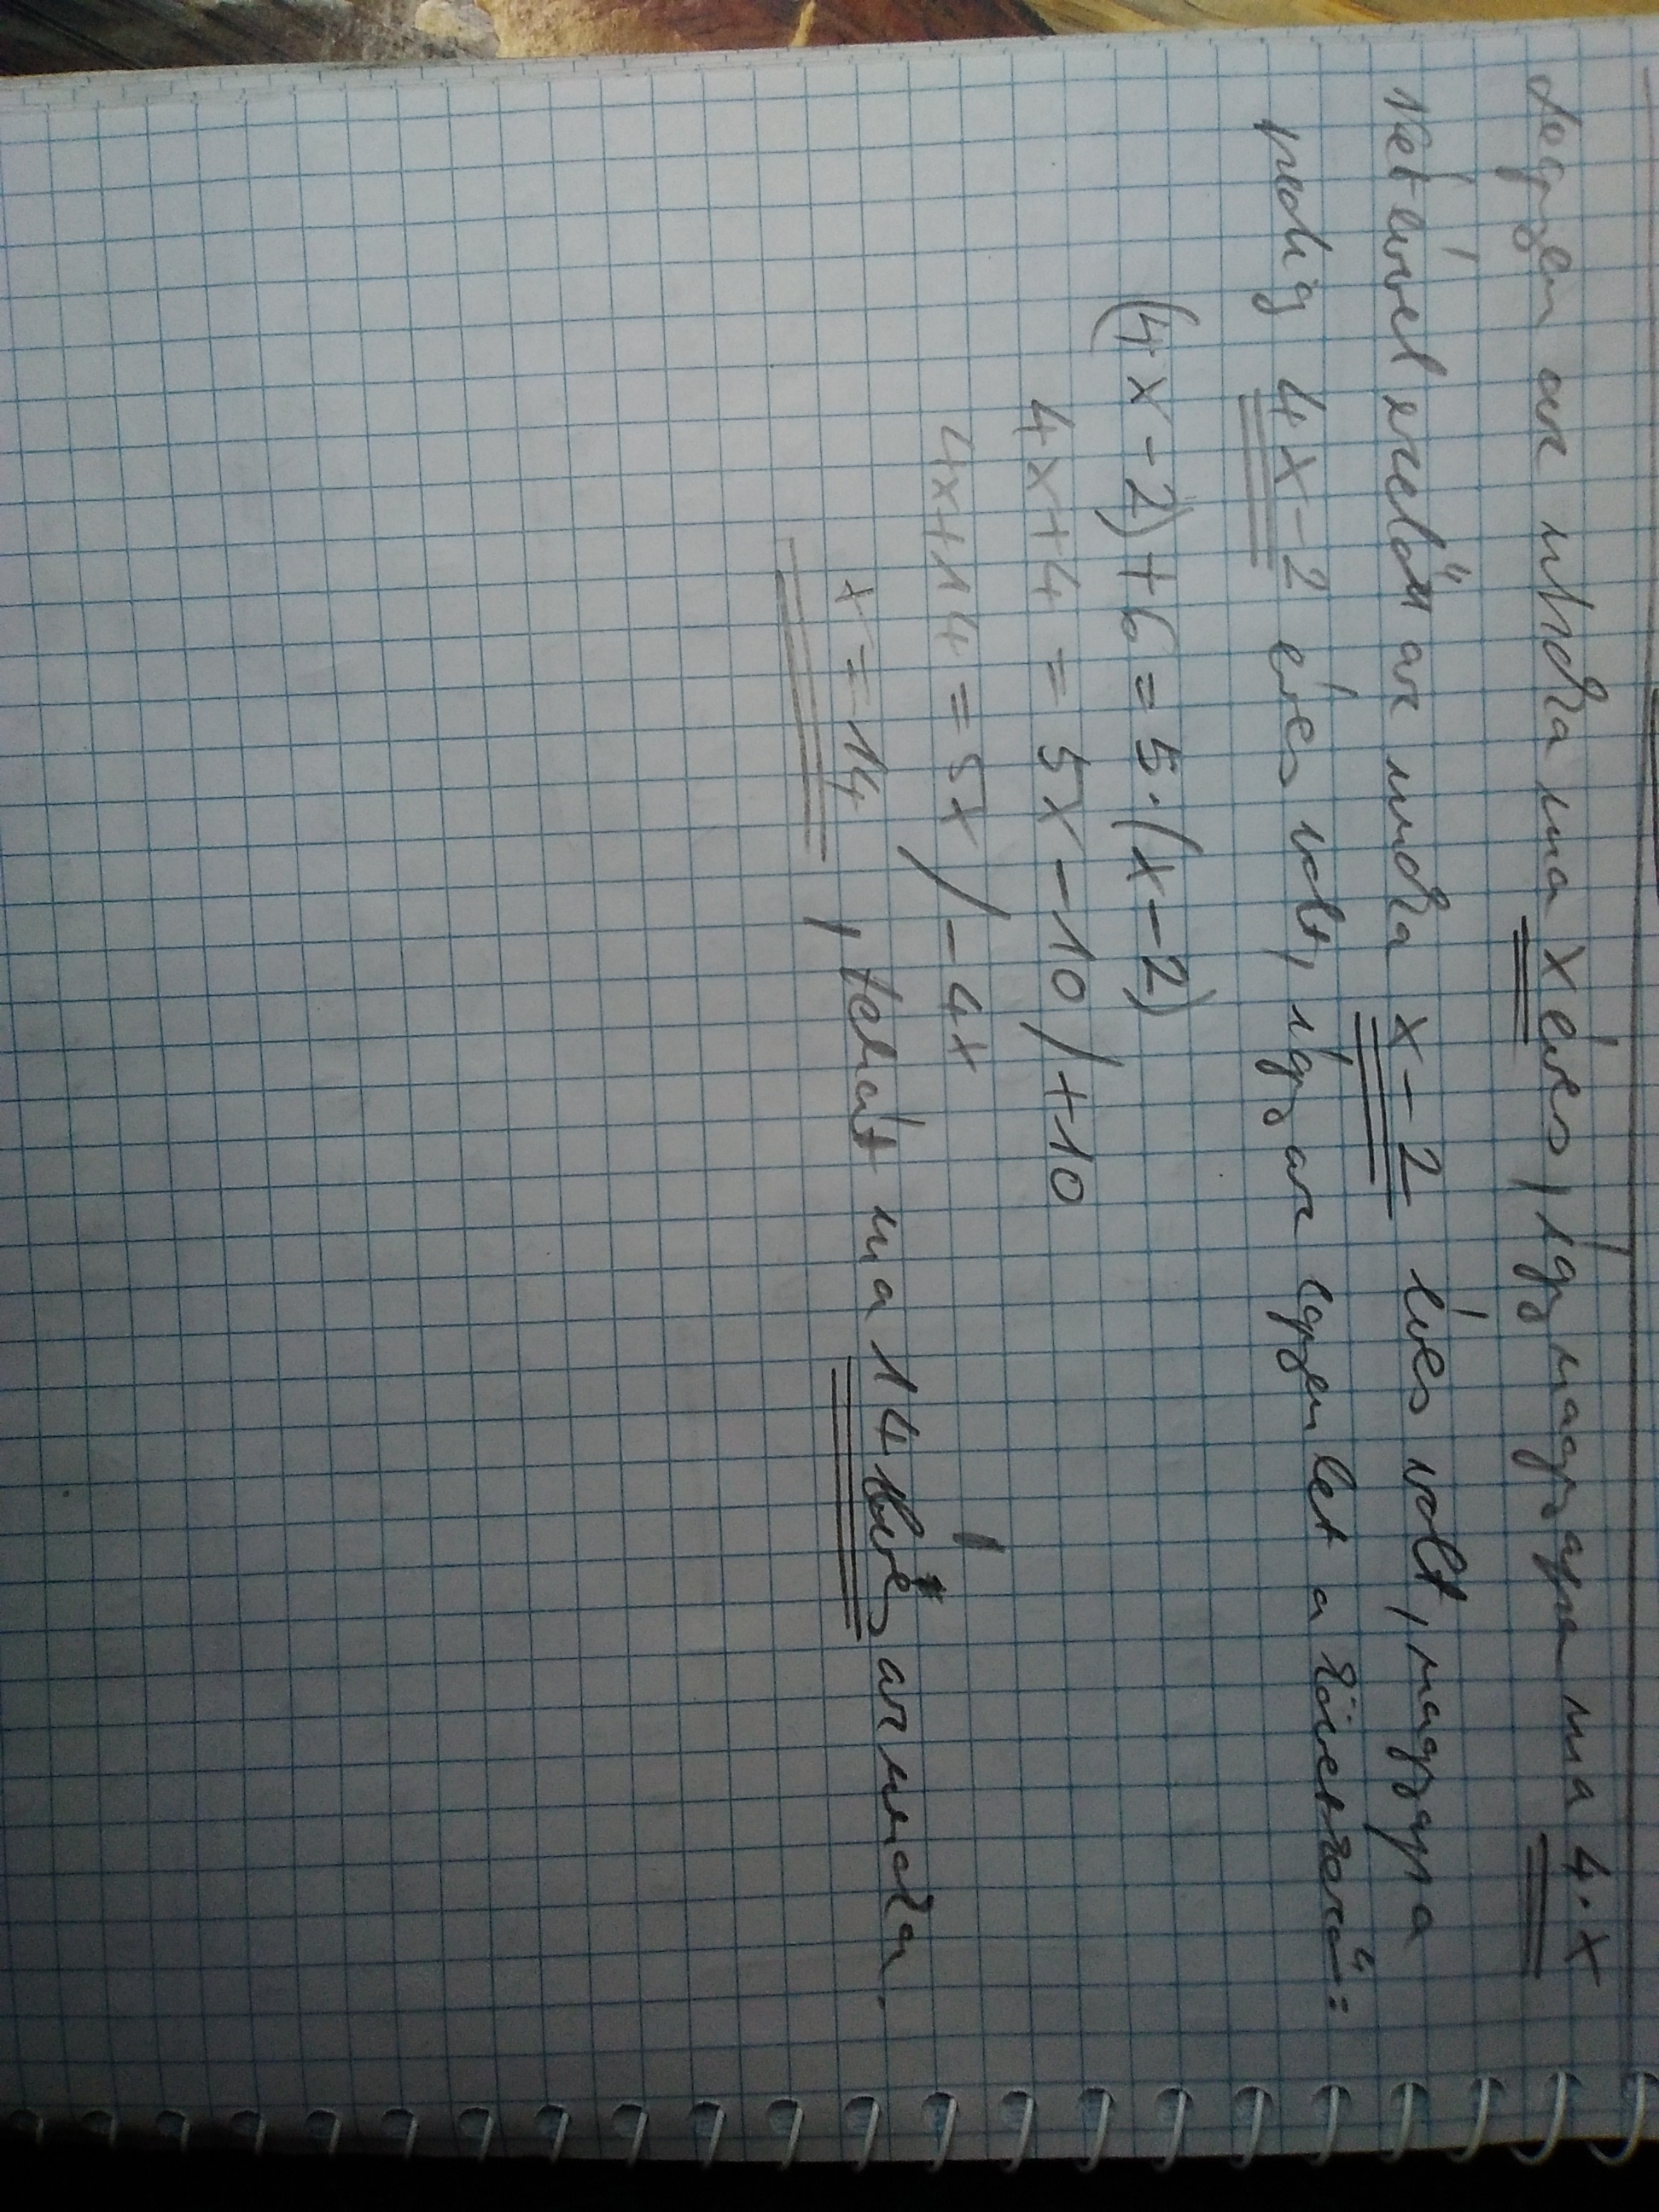 Legyen az unoka ma x éves, így nagyapa ma 4·x
két évvel ezelőtt az unoka x-2 éves volt, nagyapa
pedig 4x-2 éves volt, így az egyenlet a következő:
(4x-2)+6=5·(x-2)
4x+4=5x-10/+10
4x+14=5x/-4x
x=14, tehát ma 14 éves az unoka.